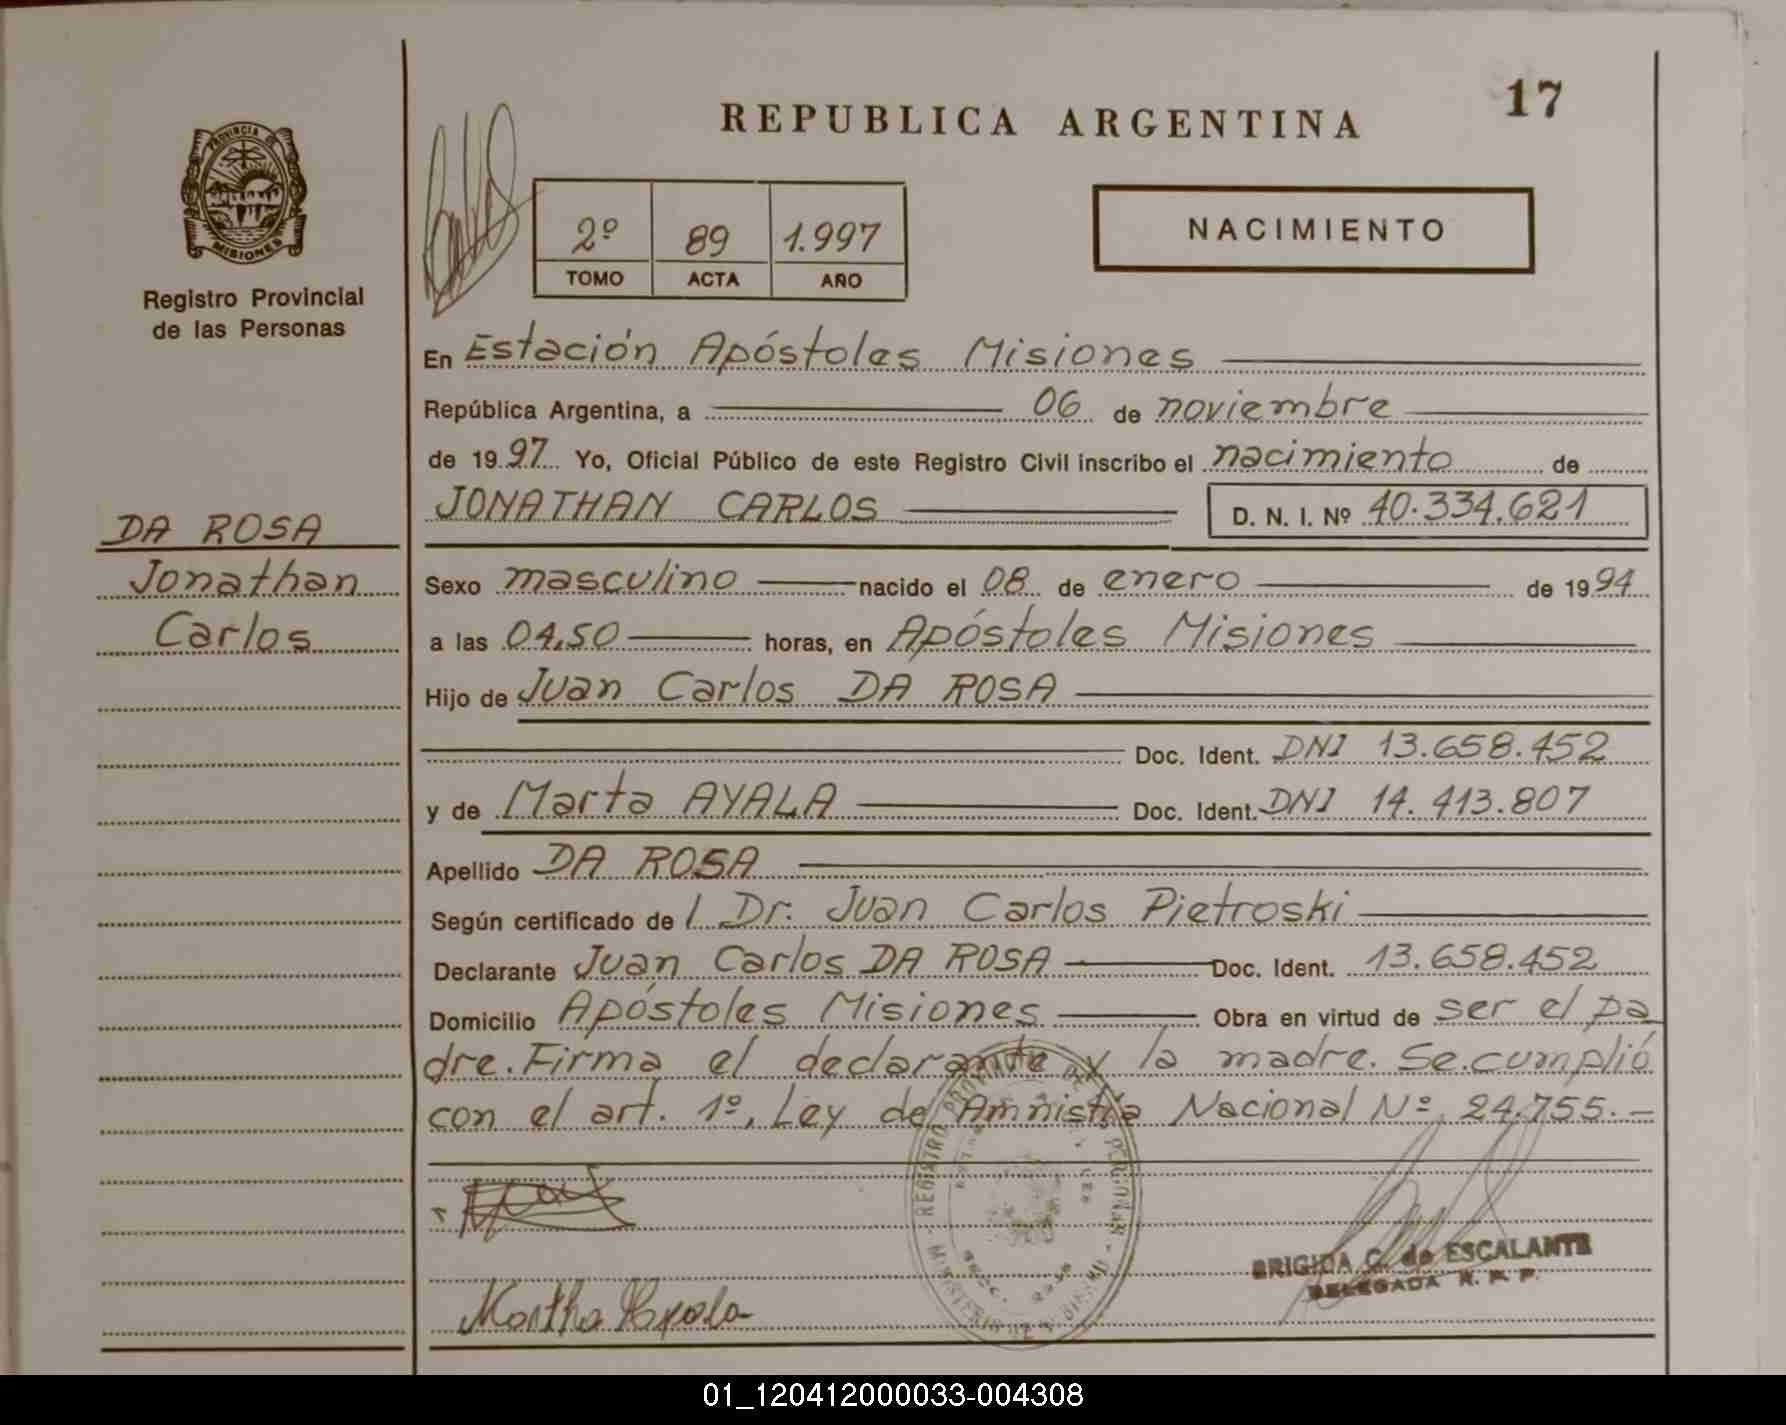 17
REPUBLICA ARGENTINA
PROVINCIA DE
MISIONES
Registro Provincial
de las Personas
2º 89 1.997
TOMO ACTA AÑO
NACIMIENTO
En Estación Apóstoles Misiones
República Argentina, a 06 de noviembre
de 1997 Yo, Oficial Público de este Registro Civil inscribo el nacimiento de
JONATHAN CARLOS D. N. I. Nº 40.334.621
DA ROSA
Jonathan
Carlos
Sexo masculino nacido el 08 de enero de 1994
a las 04,50 horas, en Apóstoles Misiones
Hijo de Juan Carlos DA ROSA
Doc. Ident. DNI 13.658.452
y de Marta AYALA Doc. Ident. DNI 14.413.807
Apellido DA ROSA
Según certificado de / Dr. Juan Carlos Pietroski
Declarante Juan Carlos DA ROSA Doc. Ident. 13.658.452
Domicilio Apóstoles Misiones Obra en virtud de ser el pa
dre. Firma el declarante y la madre. Se cumplió
con el art. 1º, Ley de Amnistía Nacional Nº 24.755.-
Martha Ayala
BRIGIDA C. de ESCALANTE
DELEGADA R. P. P.
01_120412000033-004308